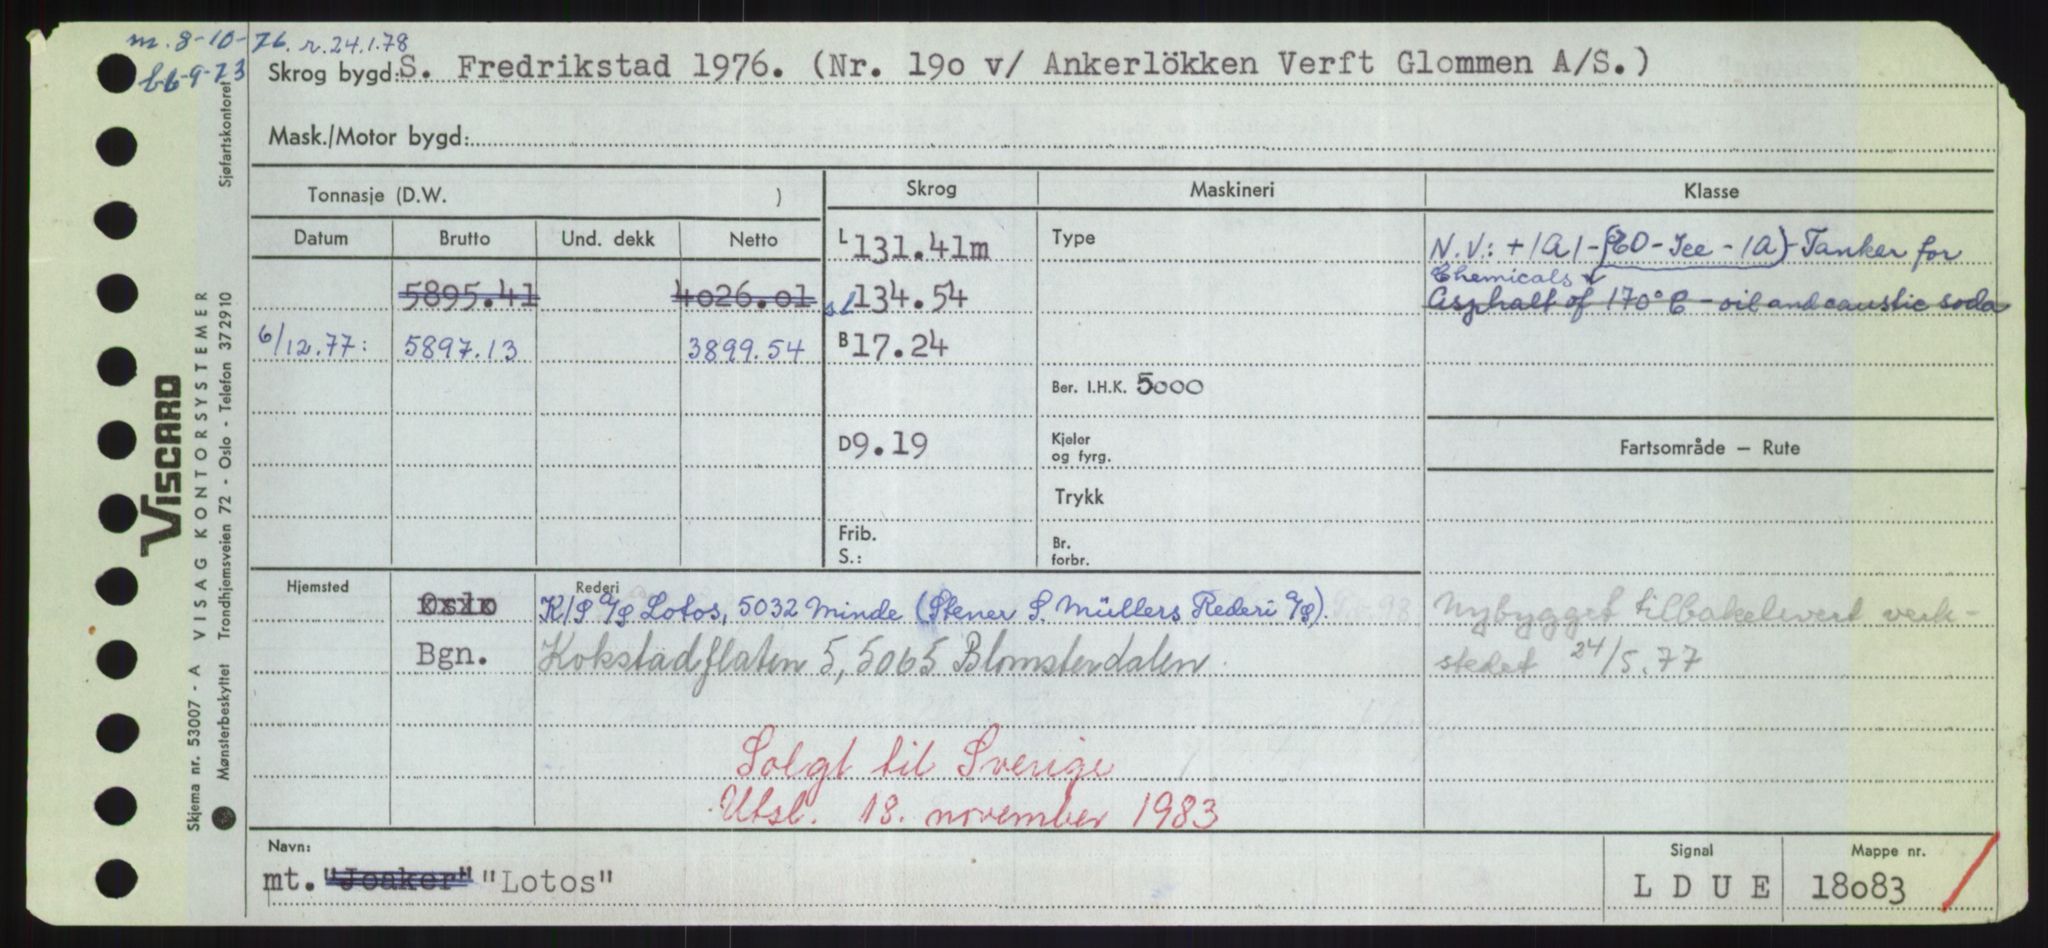 m. 8-10-76. r. 24.1.78
b6-9-73
Skrog bygd: S. Fredrikstad 1976. (Nr. 19o v/ Ankerlökken Verft Glommen A/S.)
Mask./Motor bygd:
Tonnasje (D.W. )
Skrog
Maskineri
Klasse
Datum Brutto Und. dekk Netto
5895.41 4o26.o1
6/12.77: 5897.13 3899.54
L 131.41m
sl 134.54
B 17.24
D 9.19
Frib.
S.:
Type
Ber. I.H.K. 5000
Kjeler
og fyrg.
Trykk
Br.
forbr.
N.V.: +1A1-(EO-Ice-1A)-Tanker for
Chemicals
Asphalt of 170° C - oil and caustic soda
Fartsområde — Rute
Nybygget tilbakelevert verk-
stedet 24/5.77
Hjemsted Rederi
Oslo K/S A/S Lotos, 5032 Minde (Stener S. Müllers Rederi A/S).
Bgn. Kokstadflaten 5, 5065 Blomsterdalen.
Solgt til Sverige
Utsl. 18. november 1983
Navn:
mt. "Joaker" "Lotos"
Signal
L D U E
Mappe nr.
18o83
VISCARD
Skjema nr. 53007 - A VISAG KONTORSYSTEMER
Mønsterbeskyttet Trondhjemsveien 72 - Oslo - Telefon 372910 Sjøfartskontoret